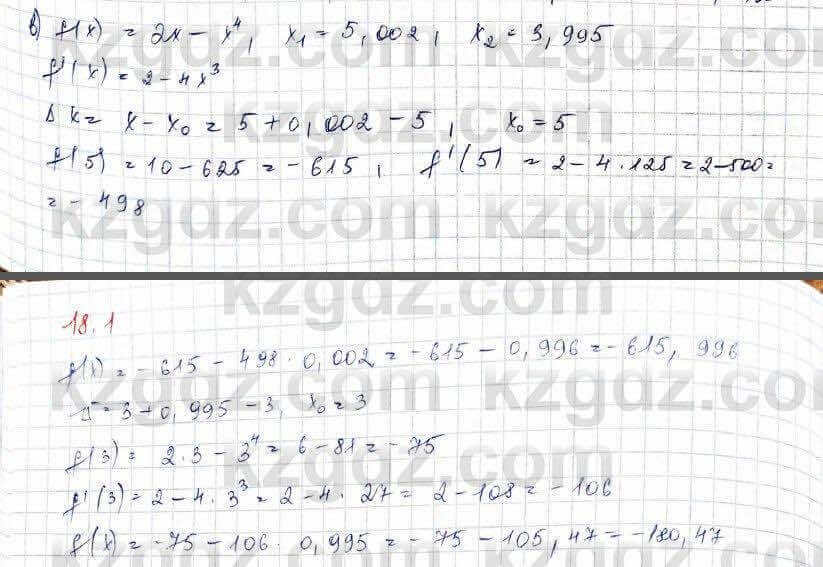 в) f(x) = 2x - x⁴, x₁ = 5,002, x₂ = 3,995
f'(x) = 2 - 4x³
Δx = x - x₀ = 5 + 0,002 - 5, x₀ = 5
f(5) = 10 - 625 = -615, f'(5) = 2 - 4·125 = 2-500=
= - 498
kzgdz.com
18.1
f(x) = -615 - 498·0,002 = -615 - 0,996 = -615,996
= 3+0,995-3, x₀ = 3
f(3) = 2·3 - 3⁴ = 6 - 81 = -75
f'(3) = 2 - 4·3³ = 2 - 4·27 = 2-108 = -106
f(x) = -75 - 106·0,995 = -75 - 105,47 = -180,47